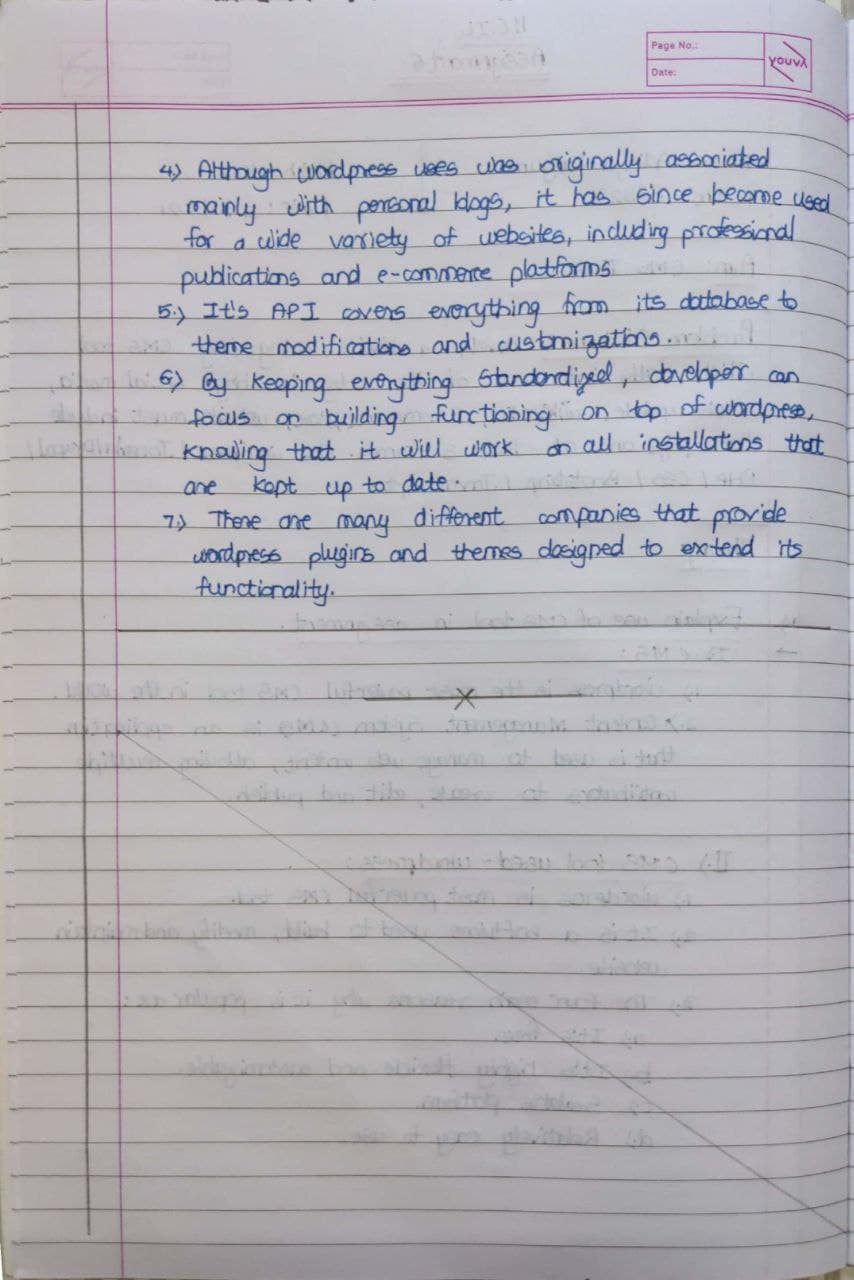 Page No.:
Date:
YOUVA
4.) Although wordpress uses was originally associated
mainly with personal blogs, it has since become used
for a wide variety of websites, including professional
publications and e-commerce platforms.
5.) It's API covers everything from its database to
theme modifications and customizations.
6) By keeping everything standardized, developer can
focus on building functioning on top of wordpress,
knowing that it will work on all installations that
are kept up to date.
7.) There are many different companies that provide
wordpress plugins and themes designed to extend its
functionality.
X